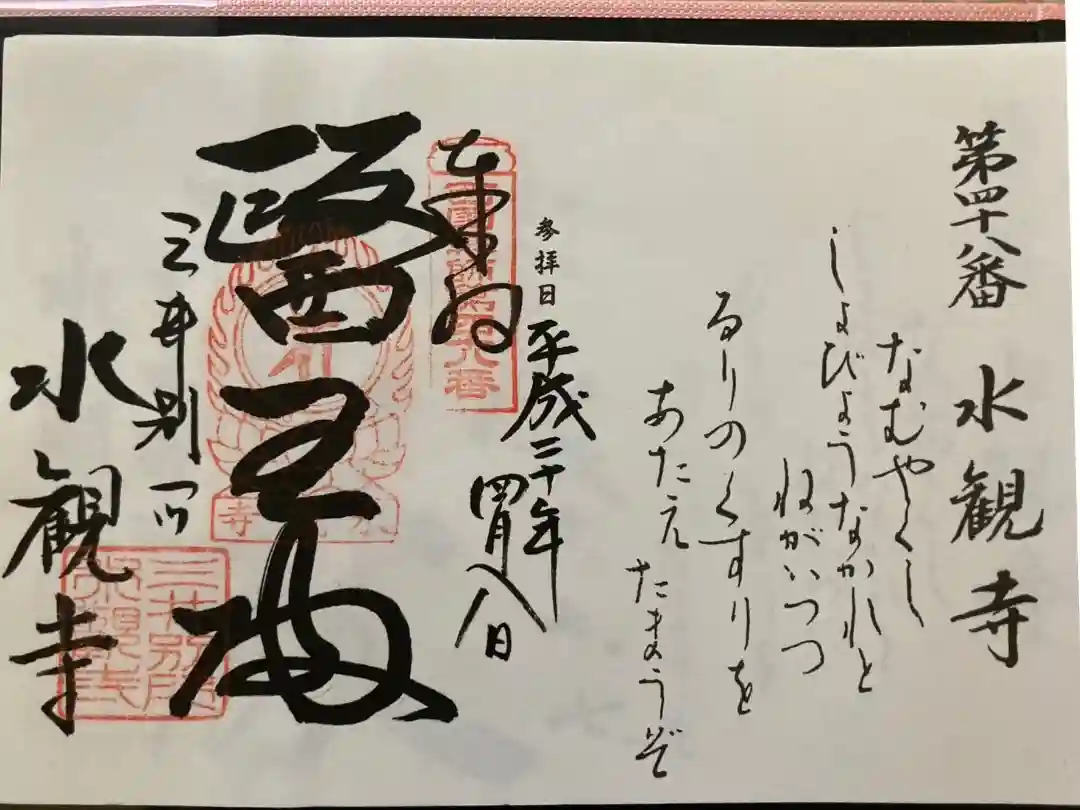 第四十八番 水観寺
なむやくし
しょびょうなかれと
ねがいつつ
るりのくすりを
あたえたまうぞ
参拝日 平成二十年
四月八日
奉拝
醫王
三井別所
水観寺
三井別所
水観寺